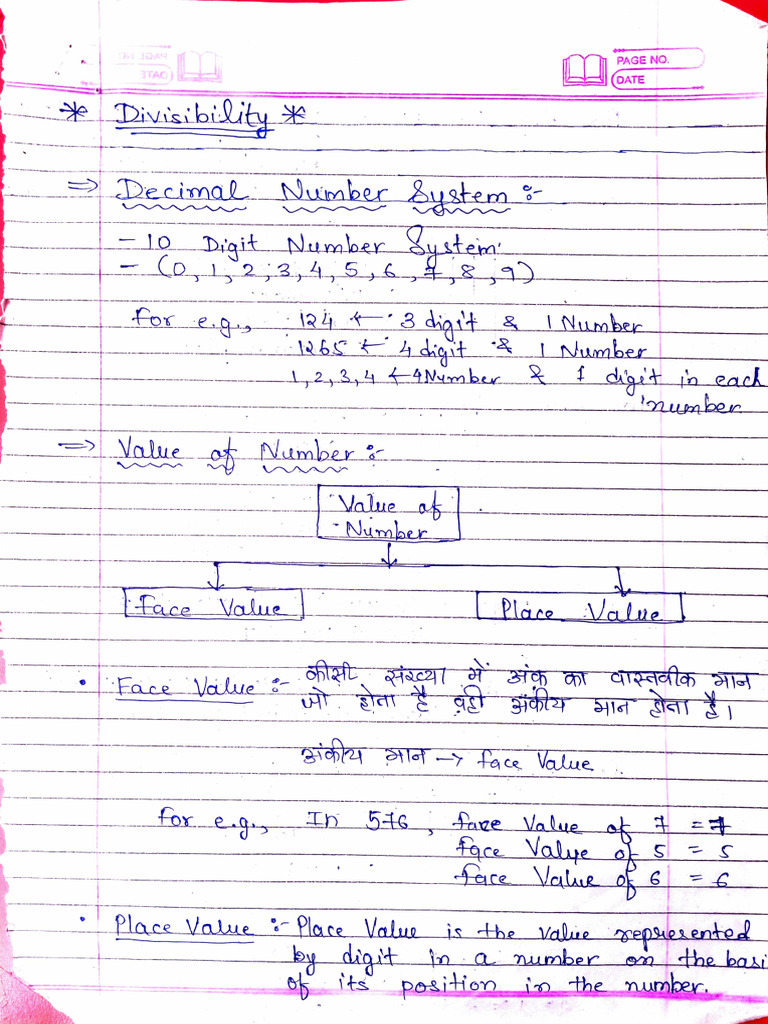 PAGE NO.
DATE
* Divisibility *
⇒ Decimal Number System :-
- 10 Digit Number System
- (0, 1, 2, 3, 4, 5, 6, 7, 8, 9)
For e.g., 124 ← 3 digit & 1 Number
1265 ← 4 digit & 1 Number
1, 2, 3, 4 ← 4 Number & 1 digit in each
number
⇒ Value of Number :-
Value of
Number
Face Value Place Value
• Face Value :- कीसी संख्या में अंक का वास्तवीक मान
जो होता है वही अंकीय मान होता है।
अंकीय मान → face Value
For e.g., In 576, face Value of 7 = 7
face Value of 5 = 5
face Value of 6 = 6
• Place Value :- Place Value is the value represented
by digit in a number on the basi
of its position in the number.